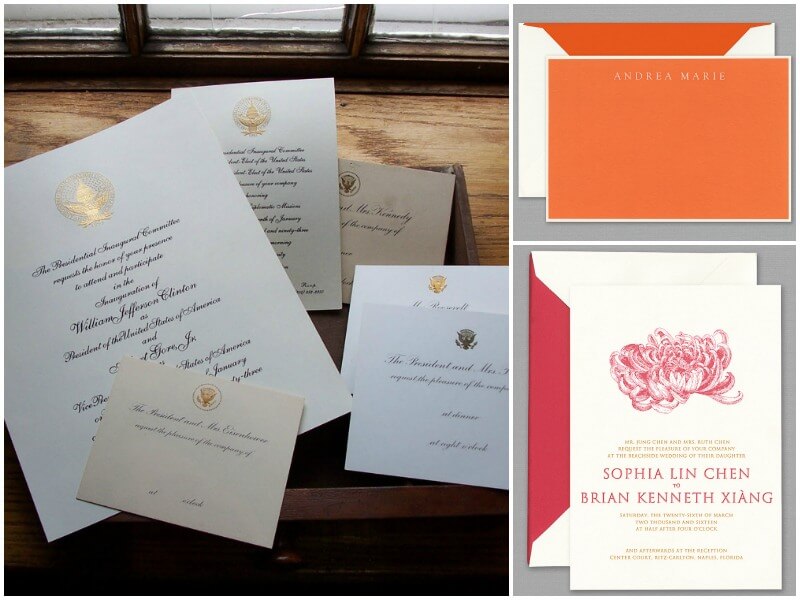 The Presidential Inaugural Committee
requests the honor of your presence
to attend and participate
in the
Inauguration of
William Jefferson Clinton
as
President of the United States of America
and
Gore, Jr.
States of America
January
-three
Inaugural Committee
Elect of the United States
of the United States
of your company
Diplomatic Missions
of January
and ninety-three
morning
R.s.v.p.
Mrs. Kennedy
the company of
The President and Mrs. Eisenhower
request the pleasure of the company of
at o'clock
The President and Mrs.
request the pleasure of the
at dinner
at eight o'clock
ANDREA MARIE
MR. JUNG CHEN AND MRS. RUTH CHEN
REQUEST THE PLEASURE OF YOUR COMPANY
AT THE BEACHSIDE WEDDING OF THEIR DAUGHTER
SOPHIA LIN CHEN
TO
BRIAN KENNETH XIÀNG
SATURDAY, THE TWENTY-SIXTH OF MARCH
TWO THOUSAND AND SIXTEEN
AT HALF AFTER FOUR O'CLOCK
AND AFTERWARDS AT THE RECEPTION
CENTER COURT, RITZ-CARLTON, NAPLES, FLORIDA